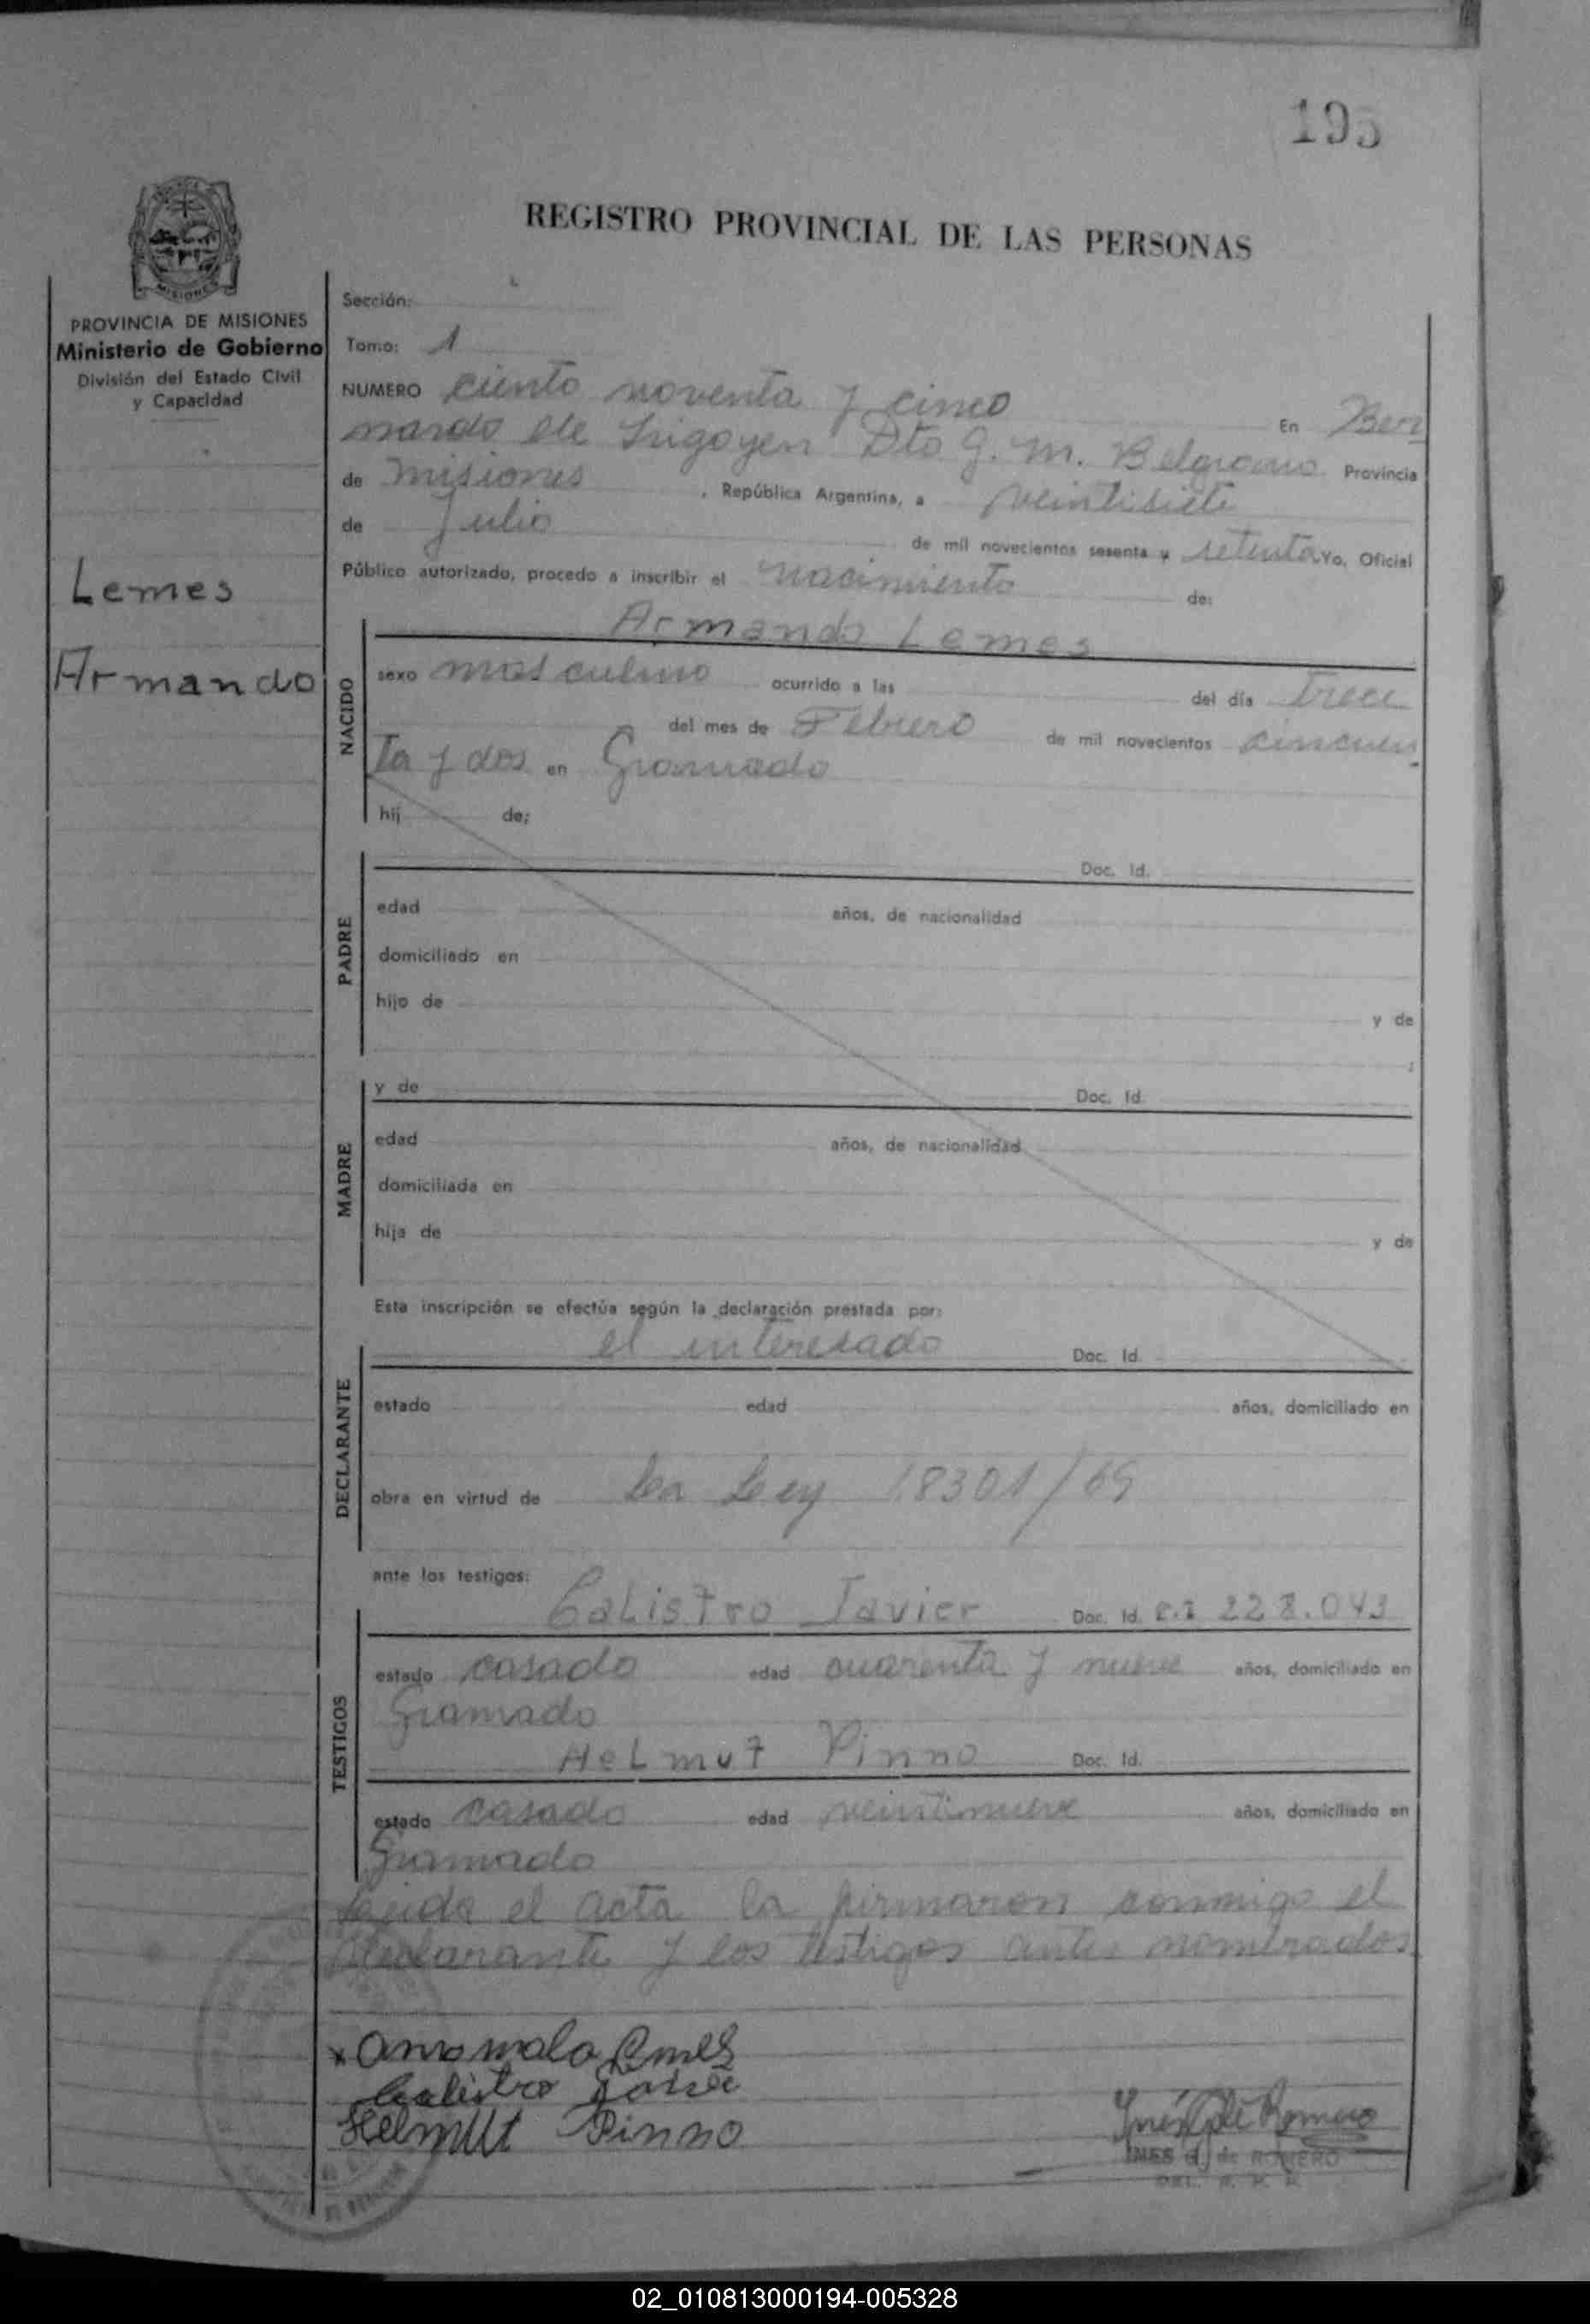 195
REGISTRO PROVINCIAL DE LAS PERSONAS
MISIONES
PROVINCIA DE MISIONES
Ministerio de Gobierno
División del Estado Civil
y Capacidad
Lemes
Armando
Sección:
Tomo: 1
NUMERO ciento noventa y cinco En Ber
nardo de Irigoyen Dto G. M. Belgrano Provincia
de Misiones , República Argentina, a veintisiete
de Julio de mil novecientos sesenta y setenta Yo, Oficial
Público autorizado, procedo a inscribir el nacimiento de:
Armando Lemes
NACIDO
sexo masculino ocurrido a las del día trece
del mes de Febrero de mil novecientos cincuen
ta y dos en Gramado
hij de;
PADRE
Doc. Id.
edad años, de nacionalidad
domiciliado en
hijo de y de
MADRE
y de Doc. Id.
edad años, de nacionalidad
domiciliada en
hija de y de
Esta inscripción se efectúa según la declaración prestada por:
DECLARANTE
el interesado Doc. Id.
estado edad años, domiciliado en
obra en virtud de la Ley 18301/69
ante los testigos:
TESTIGOS
Calistro Javier Doc. Id. C.I 228.043
estado casado edad cuarenta y nueve años, domiciliado en
Gramado
Helmut Pinno Doc. Id.
estado casado edad veintinueve años, domiciliado en
Gramado
Leida el acta la firmaron conmigo el
declarante y los testigos antes nombrados
Lemes
Calistro
Helmut Pinno
Inés de Romero
INES de ROMERO
02_010813000194-005328